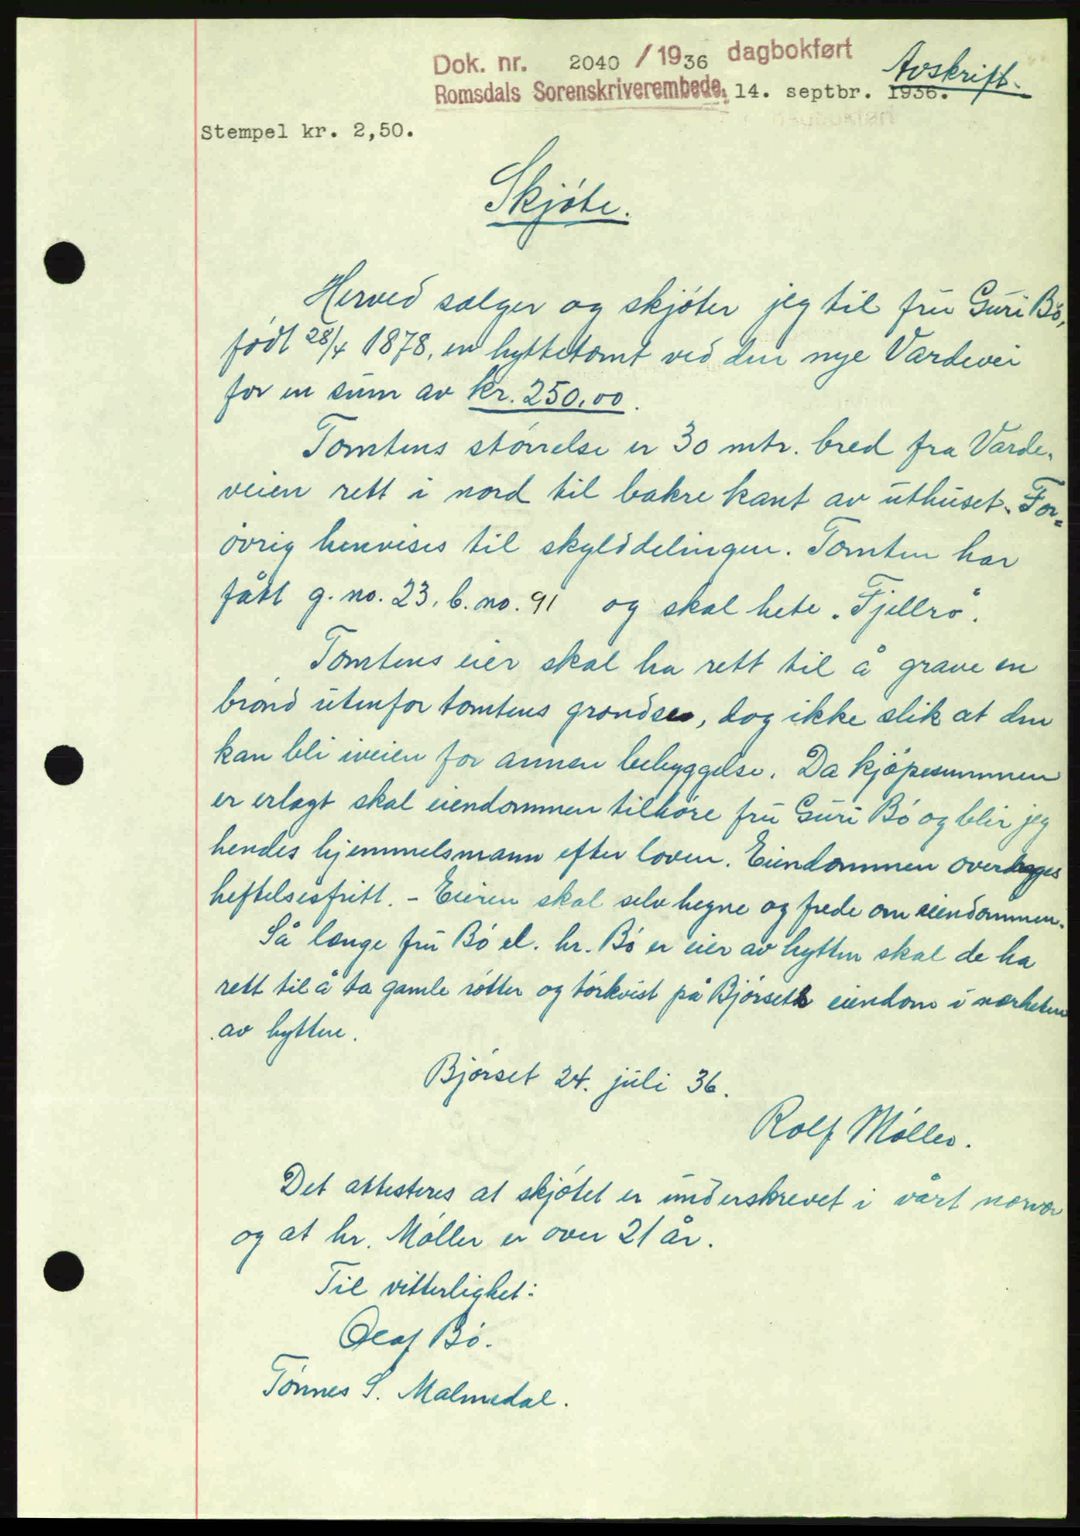 Dok. nr. 2040 / 1936 dagbokført
Avskrift.
Romsdals Sorenskriverembede, 14. septbr. 1936.
Stempel kr. 2,50.
Skjøte.
Herved sælger og skjøter jeg til fru Guri Bø,
født 28/4 1878, en hyttetomt ved den nye Vardevei
for en sum av kr. 250,00.
Tomtens størrelse er 30 mtr. bred fra Varde-
veien rett i nord til bakre kant av uthuset. For-
øvrig henvises til skylddelingen. Tomten har
fått g. no. 23, b. no. 91 og skal hete "Fjellro".
Tomtens eier skal ha rett til å grave en
brønd utenfor tomtens grændser, dog ikke slik at den
kan bli iveien for annen bebyggelse. Da kjøpesummen
er erlagt skal eiendommen tilhøre fru Guri Bø og blir jeg
hendes hjemmelsmann efter loven. Eiendommen overdrages
heftelsesfritt. - Eieren skal selv hegne og frede om eiendommen.
Så længe fru Bø el. hr. Bø er eier av hytten skal de ha
rett til å ta gamle røtter og tørkvist på Bjørsets eiendom i nærheten
av hytten.
Bjørset 24. juli 36.
Rolf Møller.
Det attesteres at skjøtet er underskrevet i vårt nærvær
og at hr. Møller er over 21 år.
Til vitterlighet:
Olaf Bø.
Tønnes S. Malmedal.